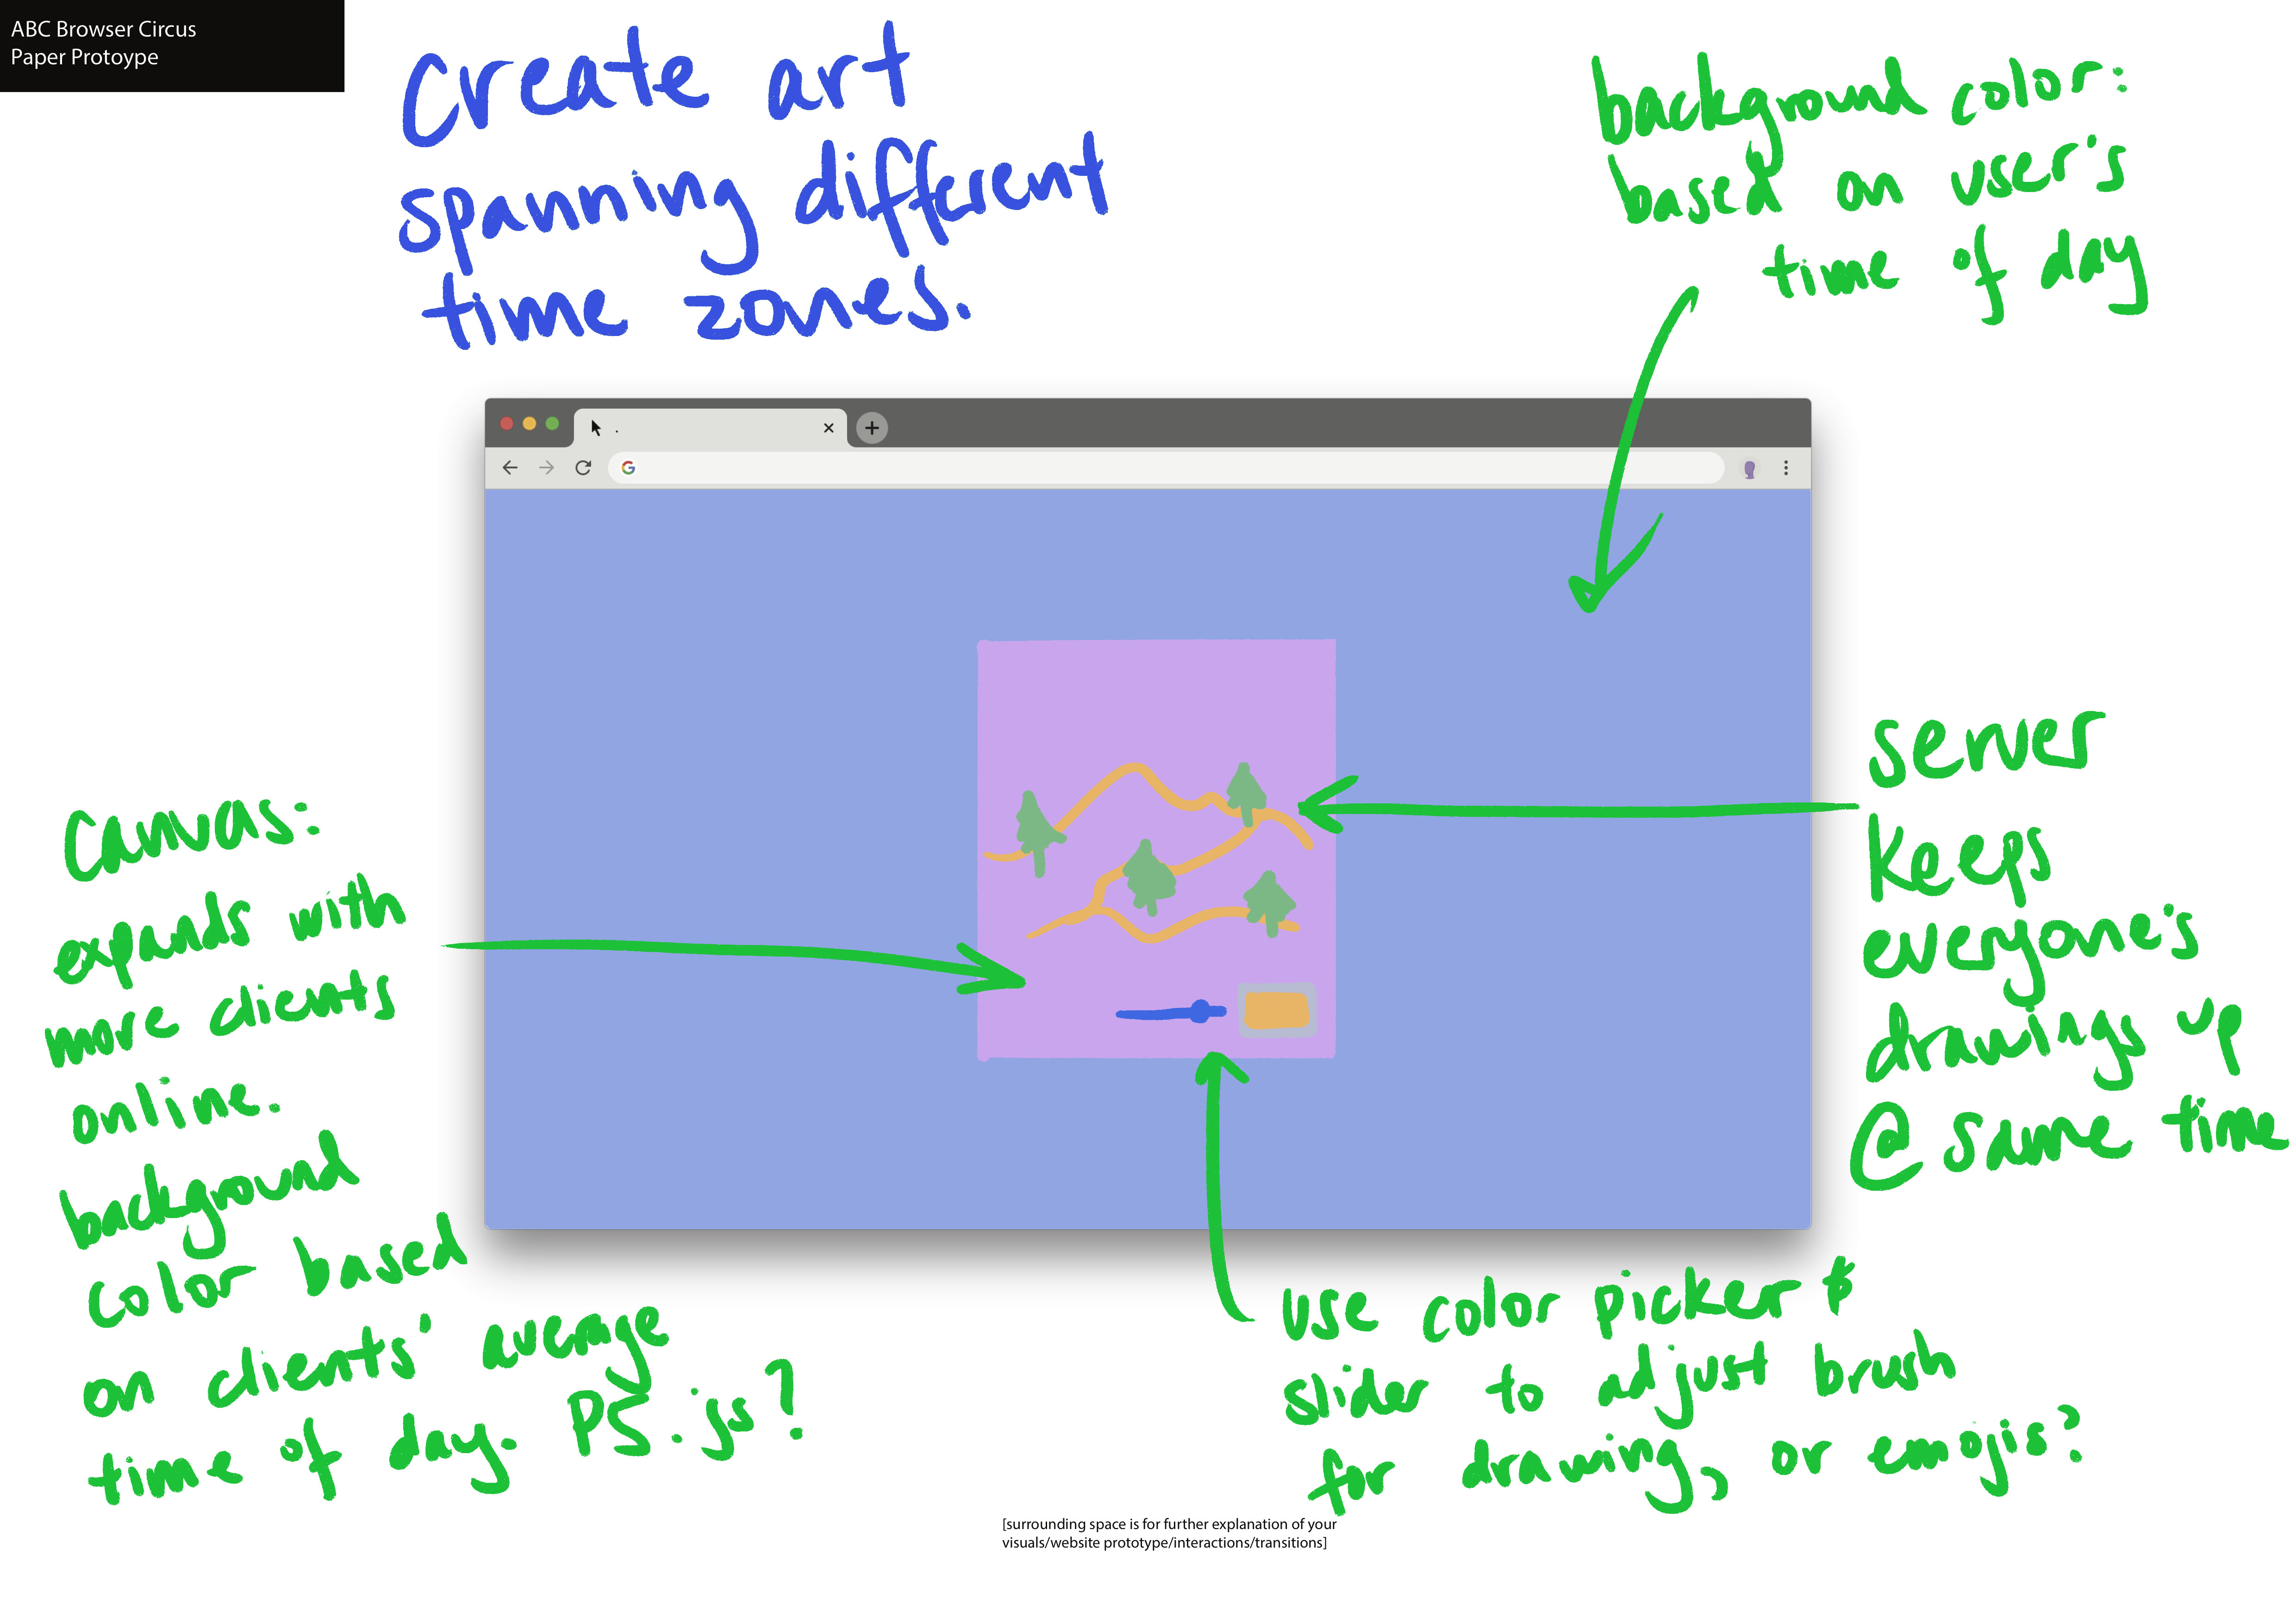 ABC Browser Circus
Paper Protoype
Create art
spanning different
time zones.
background color:
based on user's
time of day
Canvas:
expands with
more clients
online.
background
color based
on clients' average
time of day. P5.js?
server
keeps
everyone's
drawings up
@ same time
use color picker &
slider to adjust brush
for drawing, or emojis?
[surrounding space is for further explanation of your
visuals/website prototype/interactions/transitions]